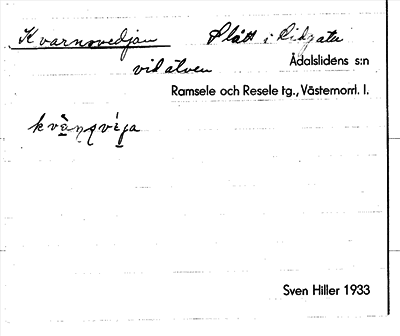 Kvarnsvedjan Slått i Lidgatu
vid älven Ådalslidens s:n
Ramsele och Resele tg., Västernorrl. l.
Sven Hiller 1933